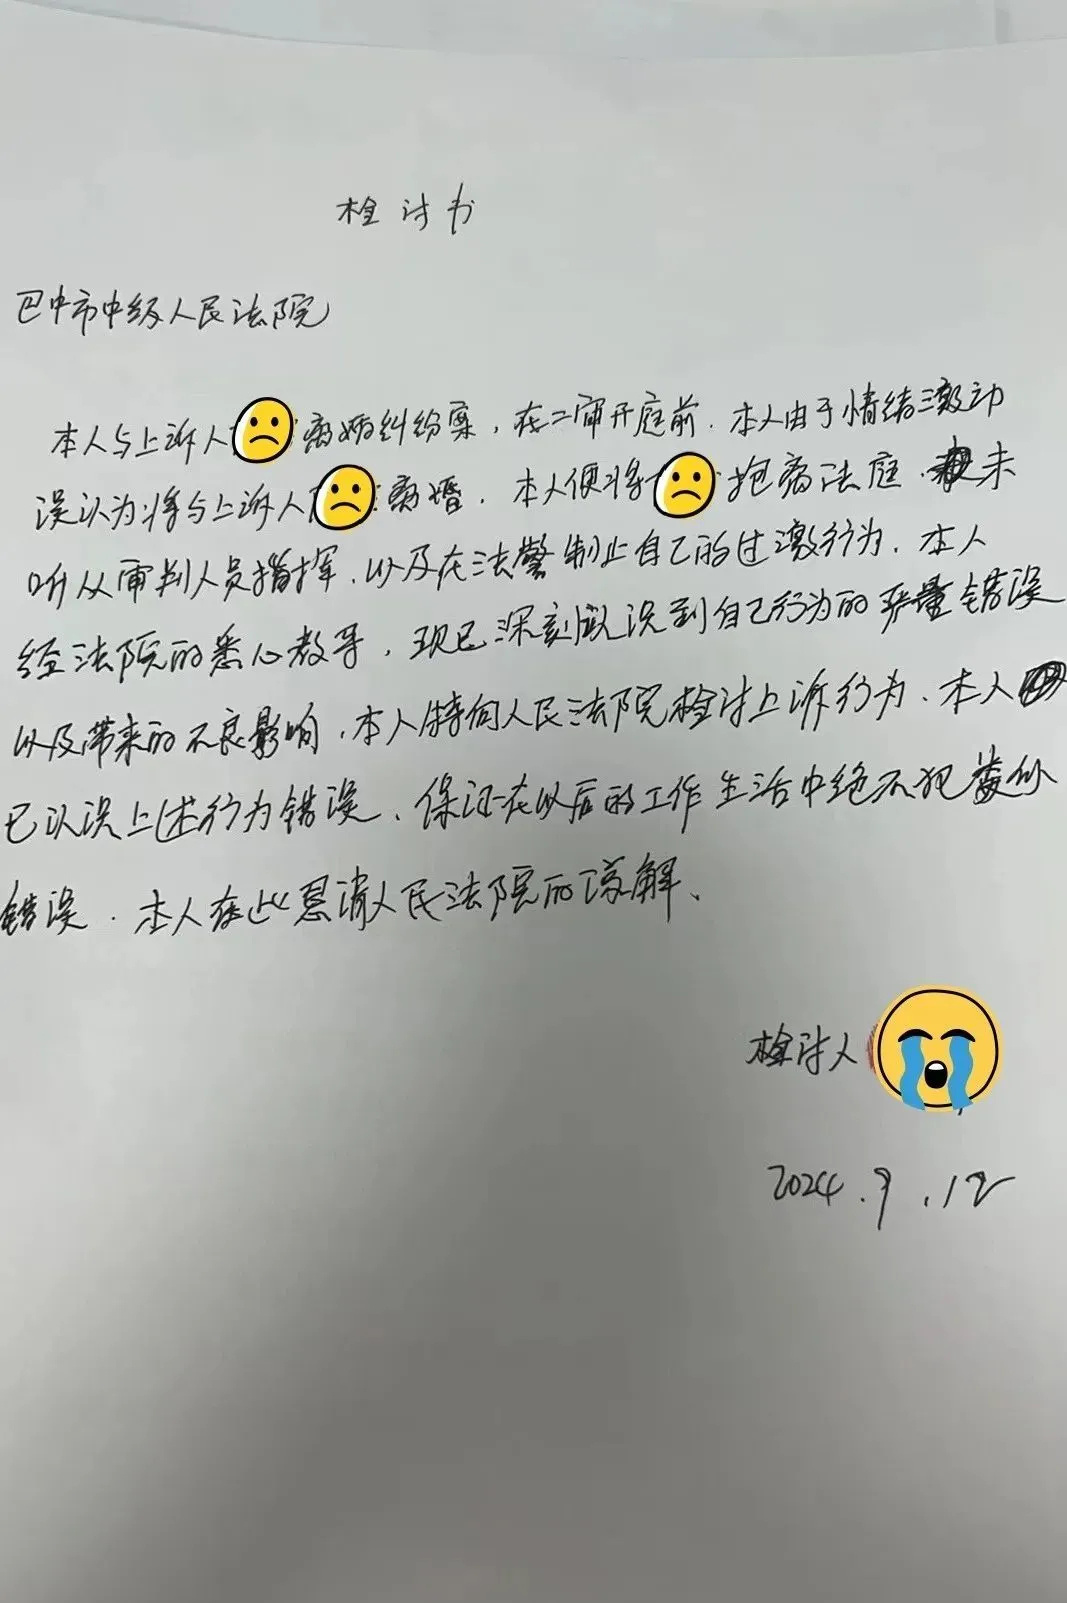 检讨书
巴中市中级人民法院
本人与上诉人离婚纠纷案，在二审开庭前．本人由于情绪激动
误认为将与上诉人离婚．本人便将抱离法庭．未
听从审判人员指挥．以及在法警制止自己的过激行为．本人
经法院的悉心教导，现已深刻认识到自己行为的严重错误
以及带来的不良影响，本人特向人民法院检讨上诉行为．本人
已认识上述行为错误、保证在以后的工作生活中绝不犯类似
错误．本人在此恳请人民法院的谅解、
检讨人
2024.9.12